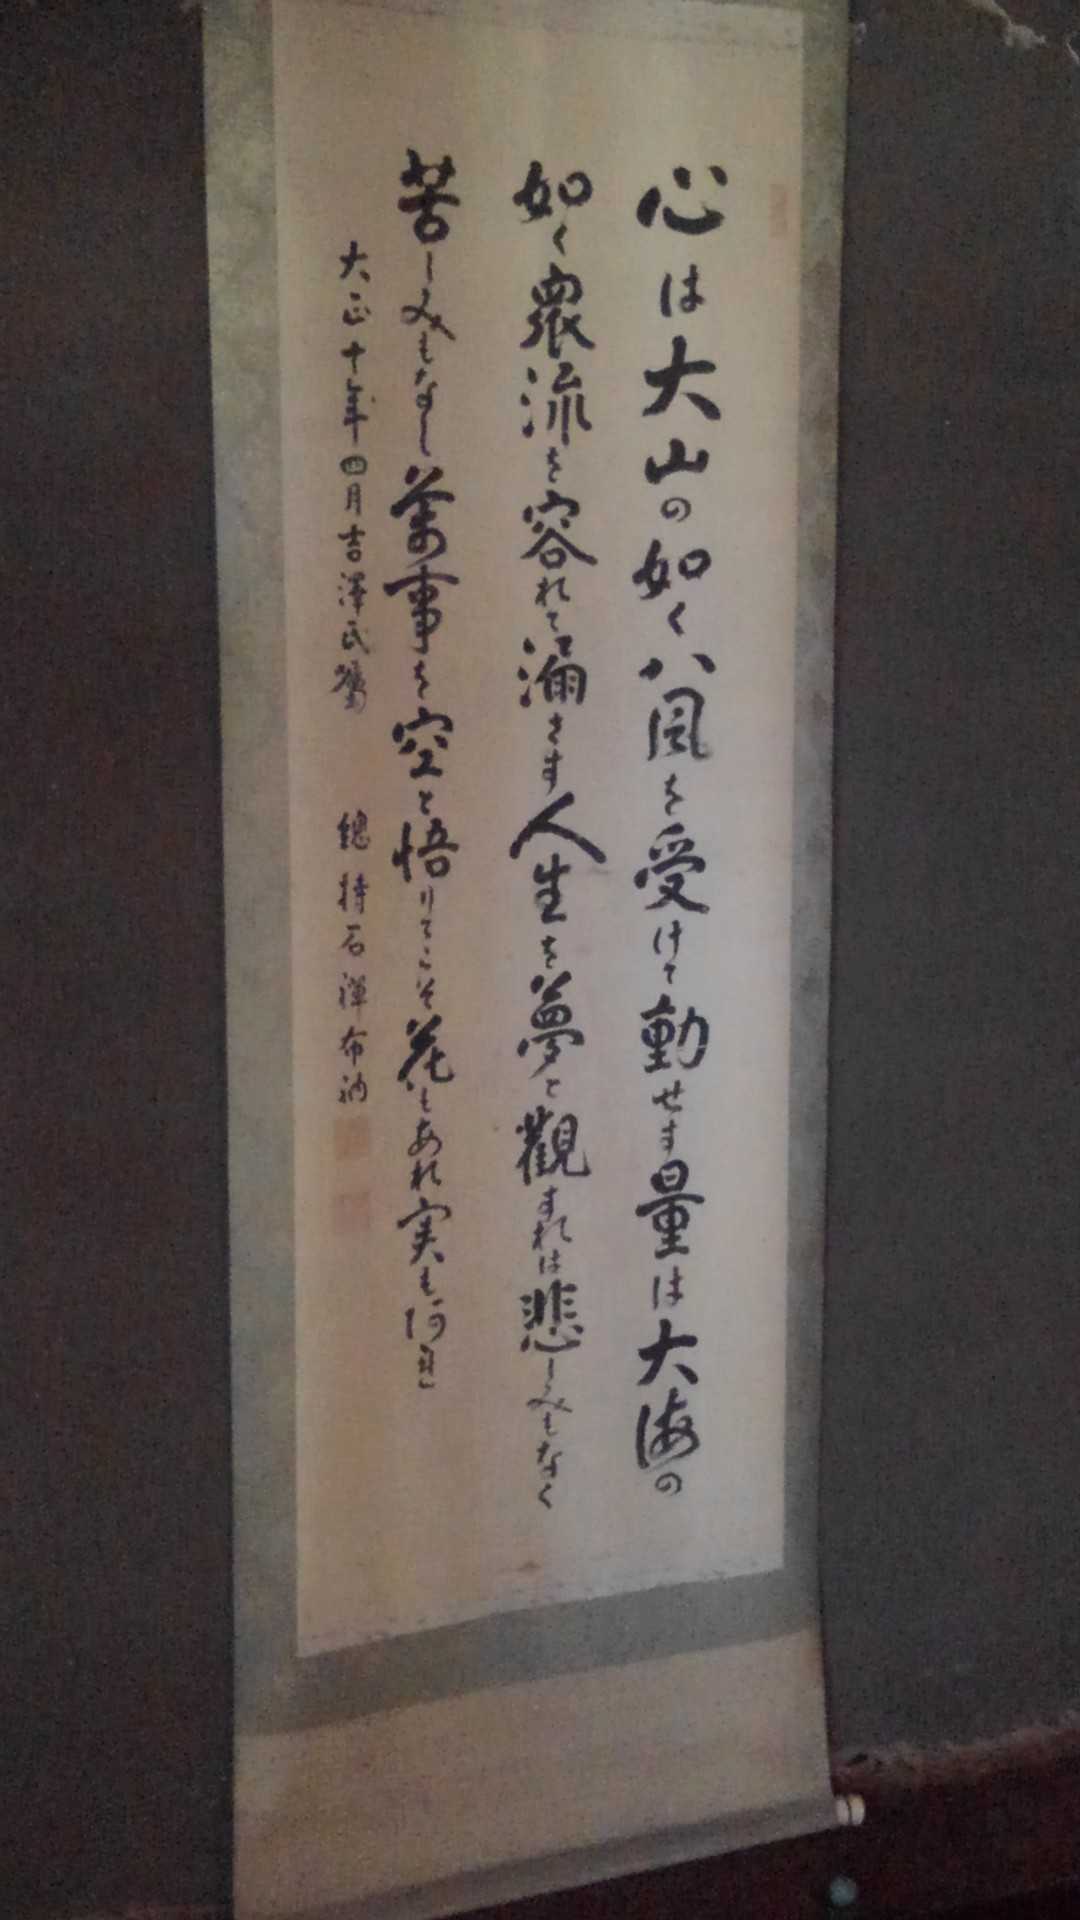 心は大山の如く八風を受けて動せす量は大海の
如く衆流を容れて漏さす人生を夢と觀すれは悲しみもなく
苦しみもなし萬事を空と悟りてこそ花もあれ実も阿れ
大正十年四月吉澤氏嘱 總持石禅布衲